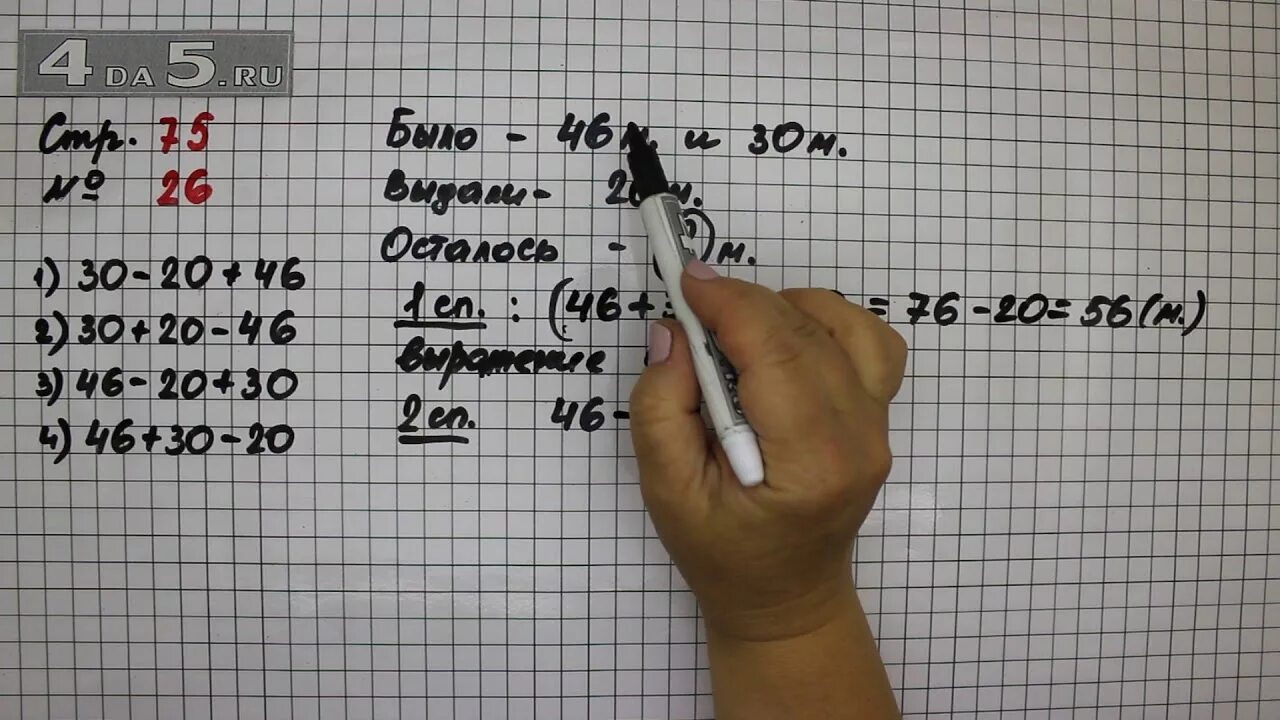 4DA5.RU
Стр. 75
№ 26
1) 30-20+46
2) 30+20-46
3) 46-20+30
4) 46+30-20
Было - 46 м. и 30 м.
Выдали- м.
Осталось - м.
1 сп. : (46+ = 76-20=56(м.)
выражение
2 сп. 46-